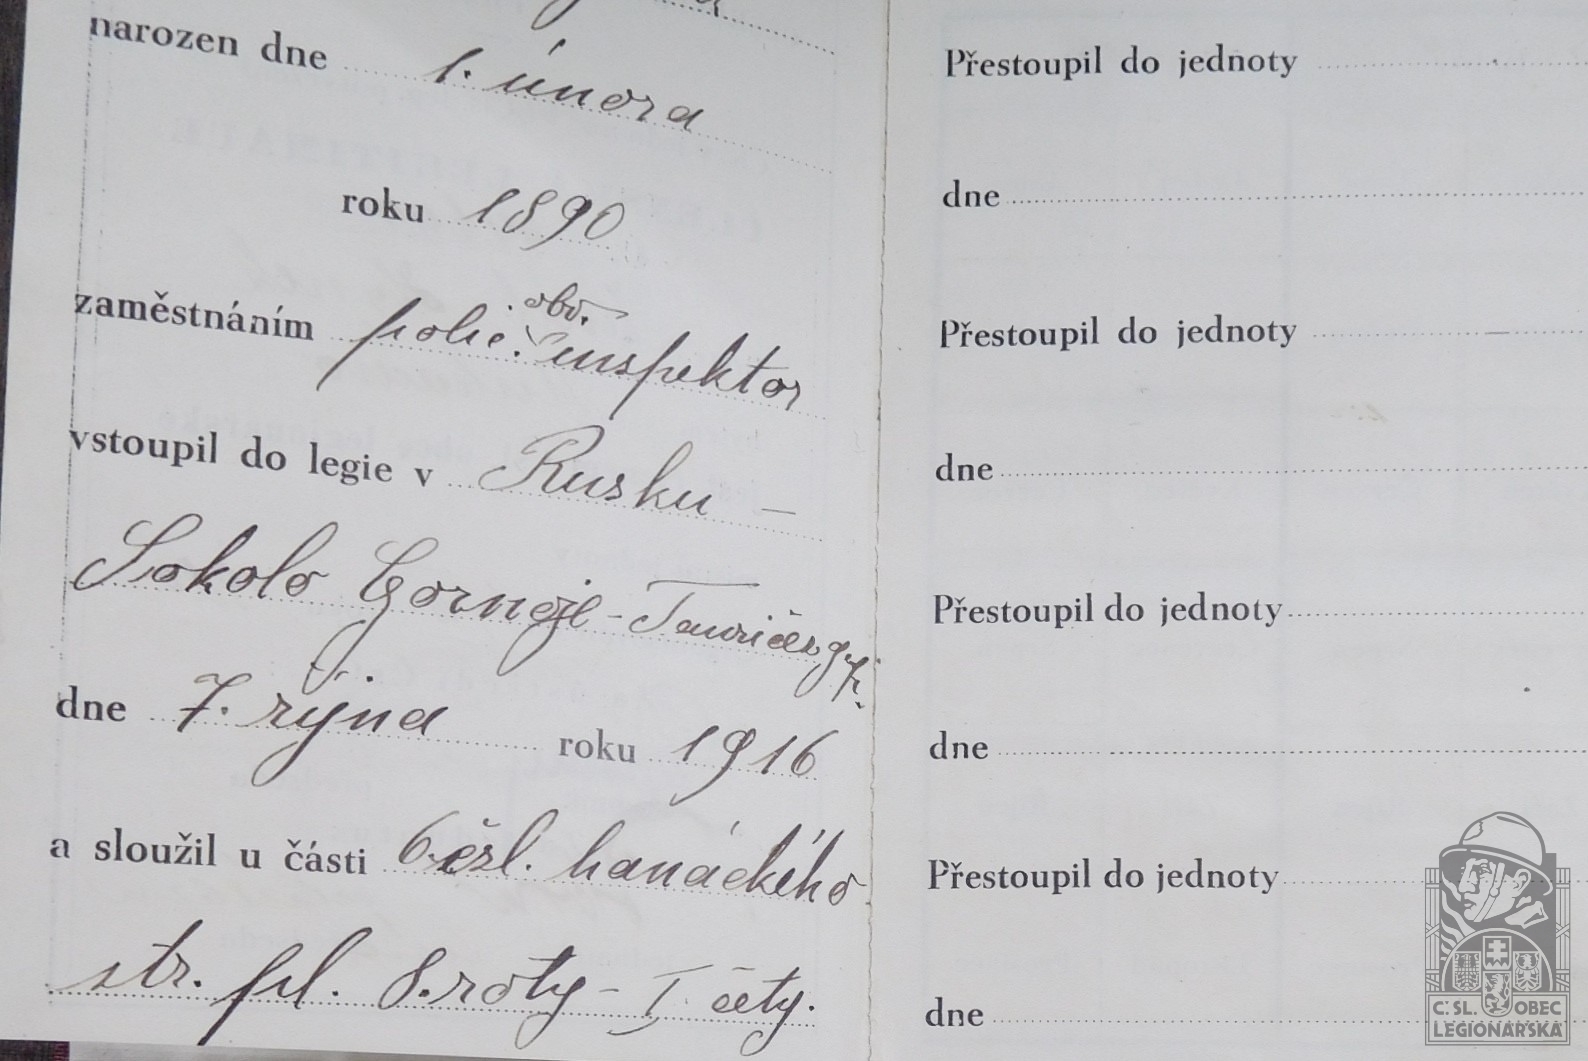 narozen dne 1. února
roku 1890
zaměstnáním polic. obv. inspektor
vstoupil do legie v Rusku –
Sokolo Gornoje - Tauričes. gub.
dne 7. října roku 1916
a sloužil u části 6. čsl. hanáckého
str. pl. 8. roty - I čety.
Přestoupil do jednoty
dne
Přestoupil do jednoty
dne
Přestoupil do jednoty
dne
Přestoupil do jednoty
dne
Č. SL. OBEC
LEGIONÁŘSKÁ